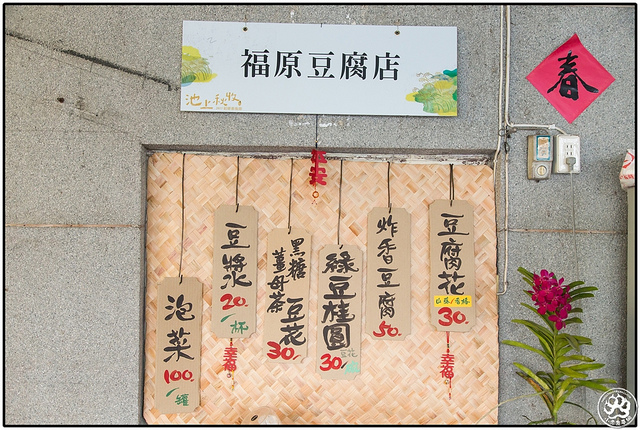 福原豆腐店
池上秋收
春
平安
豆腐花
30.
幸福
炸香豆腐
50.
綠豆桂圓
豆花
30.
黑糖
薑母茶
豆花
30.
豆漿
20.
/杯
幸福
泡菜
100.
/罐